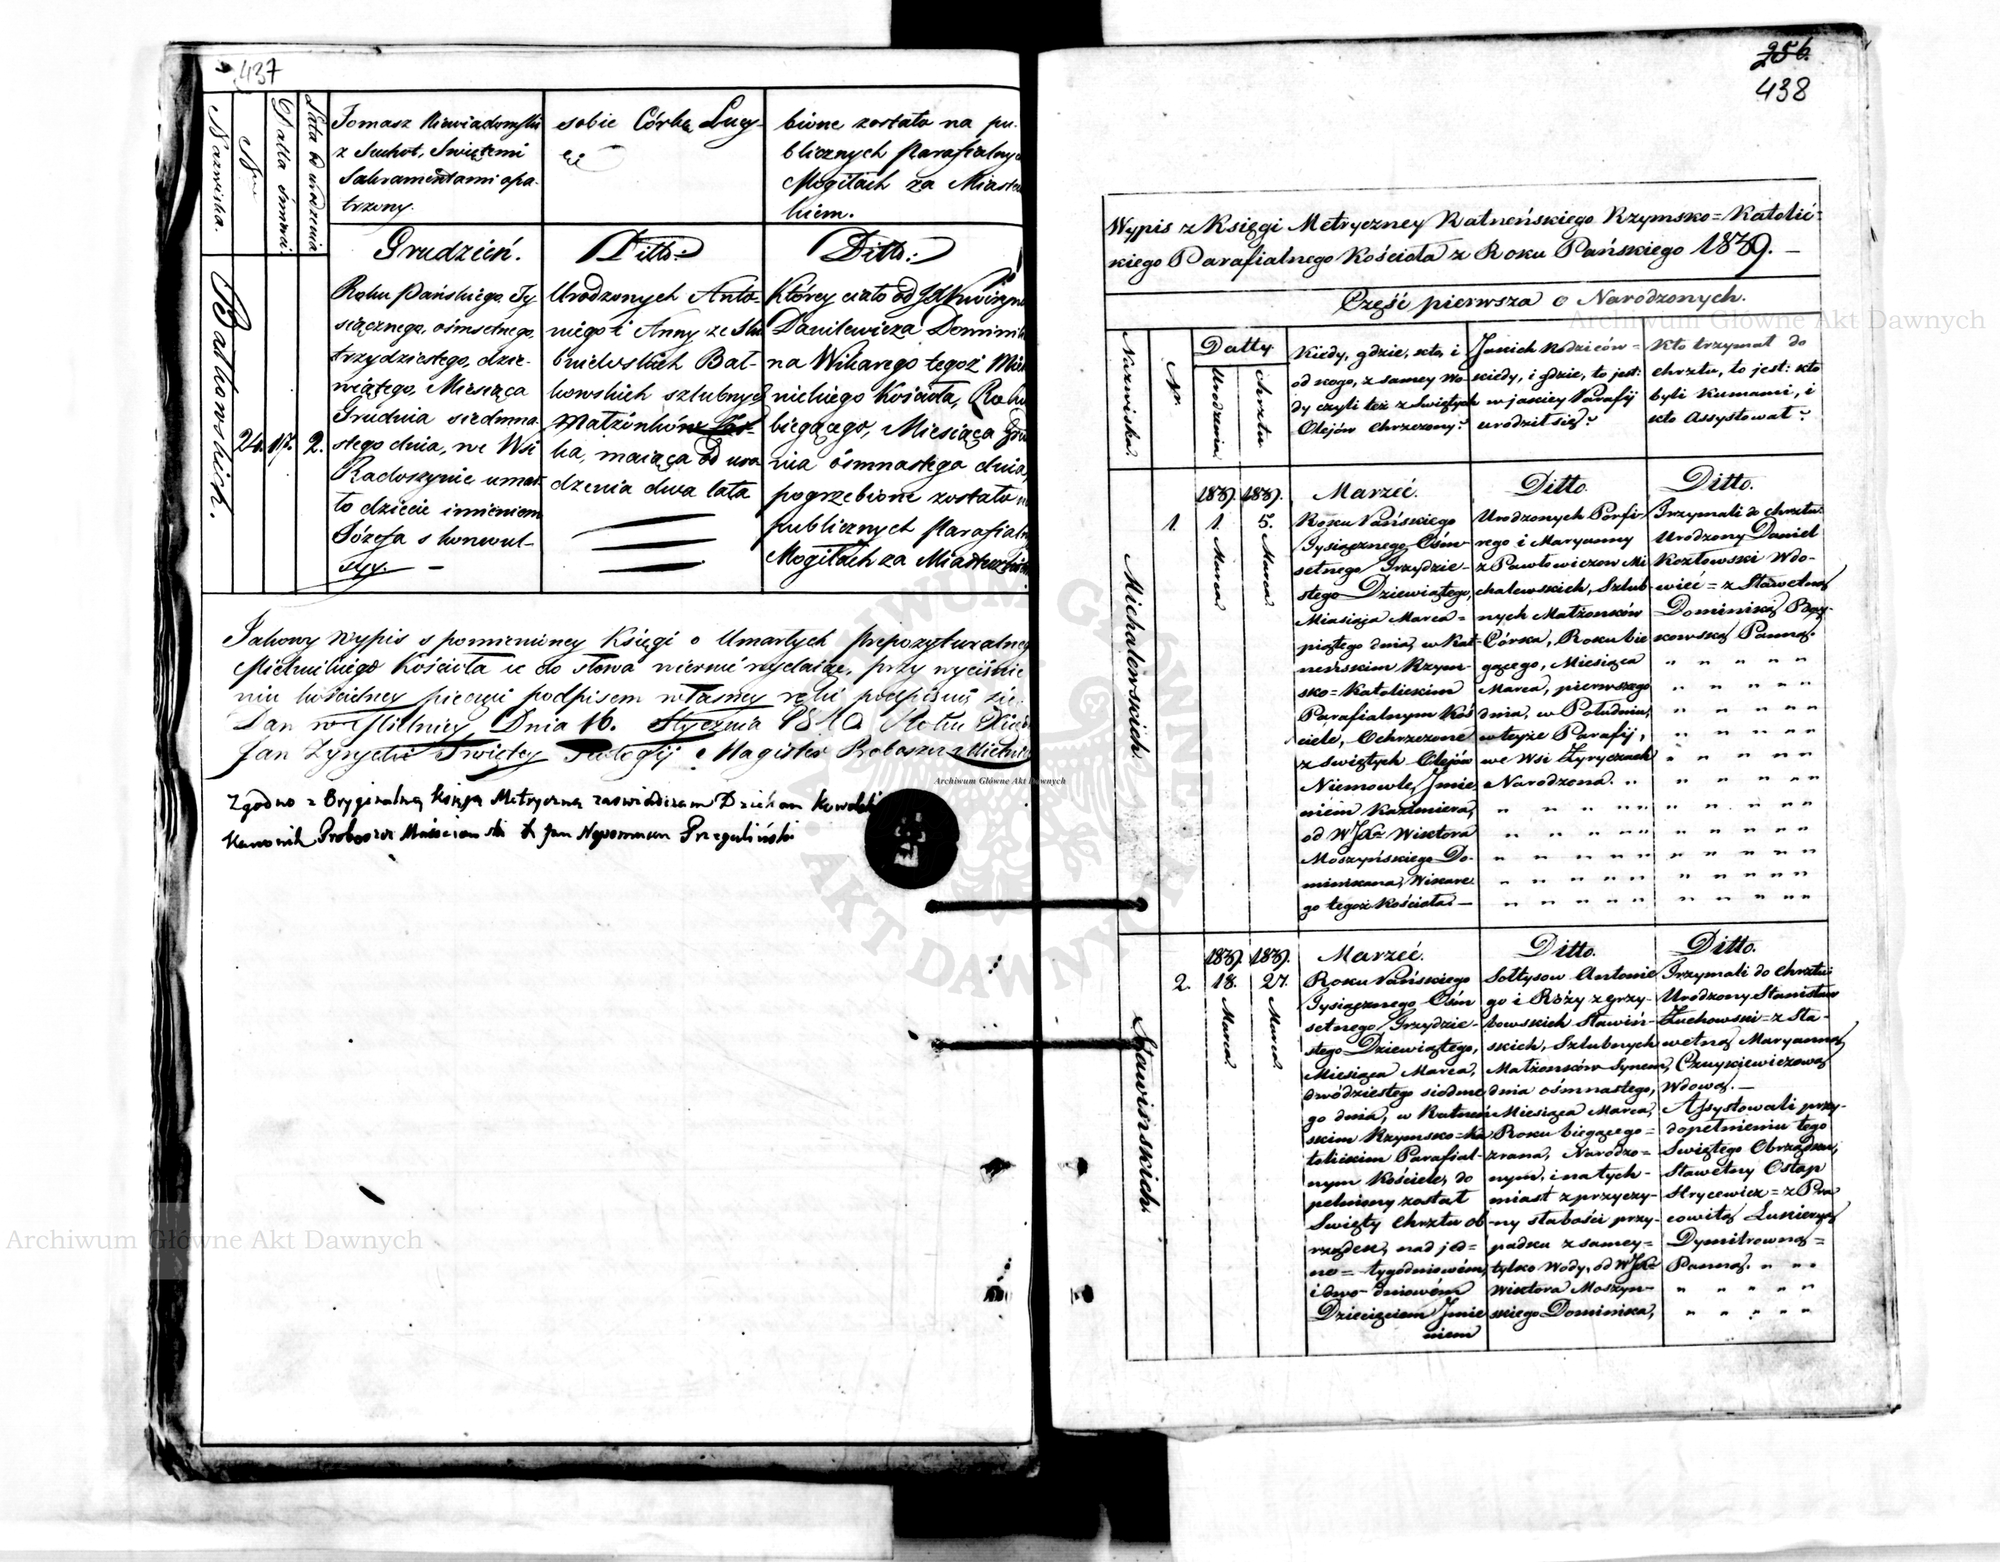 437
Nazwiska.
Nro
Datta śmierci
Lata urodzenia
Tomasz Niewiadomski
z Suchot, Swiętemi
Sakramentami opa-
trzony.
sobie Córkę Lucy-
ę
bione zostało na pu-
blicznych Parafialnych
Mogiłach za Miastecz
kiem.
Bałkowskich.
24.
17.
2.
Grudzień.
Roku Pańskiego Ty-
siącznego, osmsetnego,
trzydziestego, dzie-
wiątego, Miesiąca
Grudnia siedmna-
stego dnia, we Wsi
Radoszynie umar-
ło dziecie imieniem
Józefa s konwul-
syy. —
Ditto:
Urodzonych Anto-
niego i Anny ze
Bał-
kowskich szlubnych
Małżonków
ka, maiąca od uro-
dzenia dwa lata
Ditto:
Którey ciało od
Danilewicza Domini
na Wikarego tegoż
nickiego Kościoła, Roku
biegącego, Miesiąca Gru
nia ósmnastego dnia,
pogrzebione zostało na
publicznych Parafialn
Mogiłach za Miasteczkiem
Takowy wypis s pomienioney Księgi o Umarłych Prepozyturalnego
Mielnickiego Kościoła że do słowa wiernie wydaię, przy wyciśnie-
niu kościelney pieczęci podpisem własney ręki podpisuię się.
Dan w Mielnicy, Dnia 16. Stycznia 1840 Roku
Jan Swiętey Teologij Magister Proboszcz Mielnicki
Zgodno z Oryginalną Księgą Metryczną zaswiadczam Dziekan Kowelski
Kanonik Proboszcz X Jan Nepomucen Przegaliński
256.
438
Wypis z Księgi Metryczney Ratneńskiego Rzymsko=Katolic=
kiego Parafialnego Kościoła z Roku Pańskiego 1839. —
Część pierwsza o Narodzonych.
Nazwiska.
Nr.
Datty
Urodzenia
Chrztu
Kiedy, gdzie, kto, i
od kogo, z samey wo-
dy czyli też z Swiętych
Olejów Chrzczony?
Jakich Rodziców =
kiedy, i gdzie, to jest:
w jakiey Parafij
urodził się?
Kto trzymał do
chrztu, to jest: kto
byli Kumami, i
kto Assystował?
Michalewskich.
1.
1839.
1.
Marca.
1839.
5.
Marca.
Marzec.
Roku Pańskiego
Tysiącznego Ośm-
setnego Trzydzie-
stego Dziewiątego,
Miesiąca Marca =
piątego dnia, w Rat-
neńskim Rzym-
sko=Katolickim
Parafialnym Koś
ciele, Ochrzczone
z świętych Olejów
Niemowle, Jmie,
niem Kazimiera,
od WJX Wiktora
Moszyńskiego Do-
minikana, Wikare
go tegoż Kościoła. —
Ditto.
Urodzonych Porfi-
rego i Maryanny
z Pawłowiczow Mi
chalewskich, Szlub-
nych Małżonków
Córka, Roku bie
gącego, Miesiąca
Marca, pierwszego
dnia, w Południu,
w teyże Parafij,
we Wsi Żyryczach
Narodzona. " "
" " " " "
" " " " "
" " " " "
" " " " "
" " " " "
Ditto.
Trzymali do chrztu:
Urodzony Daniel
Kozłowski Wdo-
wiec = z Sławetną
Dominiką Bzy-
kowską Panną.
" " " " "
" " " " "
" " " " "
" " " " "
" " " " "
" " " " "
" " " " "
" " " " "
" " " " "
" " " " "
" " " " "
Sławińskich.
2.
1839.
18.
Marca.
1839.
27.
Marca.
Marzec.
Roku Pańskiego
Tysiącznego Ośm
setnego Trzydzie-
stego Dziewiątego,
Miesiąca Marca,
dwódziestego siodme
go dnia, w Ratneń
skim Rzymsko=Ka
tolickim Parafial-
nym Kościele, do
pełniony został
Swięty Chrztu ob-
rządek, nad jed=
no = tygodniowém,
i dwo-dniowém
Dziecięciem Jmie
niem
Ditto.
Sołtysow Antonie
go i Róży z Grzy-
bowskich Sławiń-
skich, Szlubnych
Małżonków Synem,
dnia ośmnastego,
Miesiąca Marca,
Roku biegącego =
zrana, Narodzo=
nym, i natych-
miast z przyczy-
ny słabości przy-
padku z samey=
tylko Wody, od WJX
Wiktora Moszyn-
skiego Dominika,
Ditto.
Trzymali do chrztu:
Urodzony Stanisław
Żuchowski = z Sła-
wetną Maryanną
Czuykiewiczową
Wdową. —
Assystowali przy-
dopełnieniu tego
Swiętego Obrządku,
Sławetny Ostap
Hrycewicz = z Pra
cowitą Łukieryą
Dymitrowną =
Panną. " " "
" " " " "
" " " " "
Archiwum Główne Akt Dawnych
Archiwum Główne Akt Dawnych
Archiwum Główne Akt Dawnych
ARCHIWUM GŁÓWNE AKT DAWNYCH